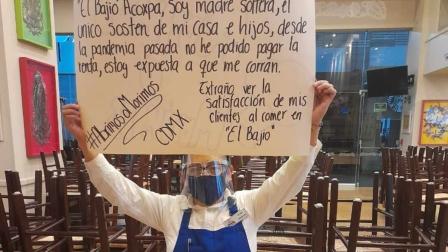 "El Bajio Acoxpa, Soy madre soltera, el
único sosten de mi casa e hijos, desde
la pandemia pasada no he podido pagar la
renta, estoy expuesta a que me corran.
Extraño ver la
satisfacción de mis
clientes al comer en
"El Bajío"
#AbrimosoMorimos
CDMX